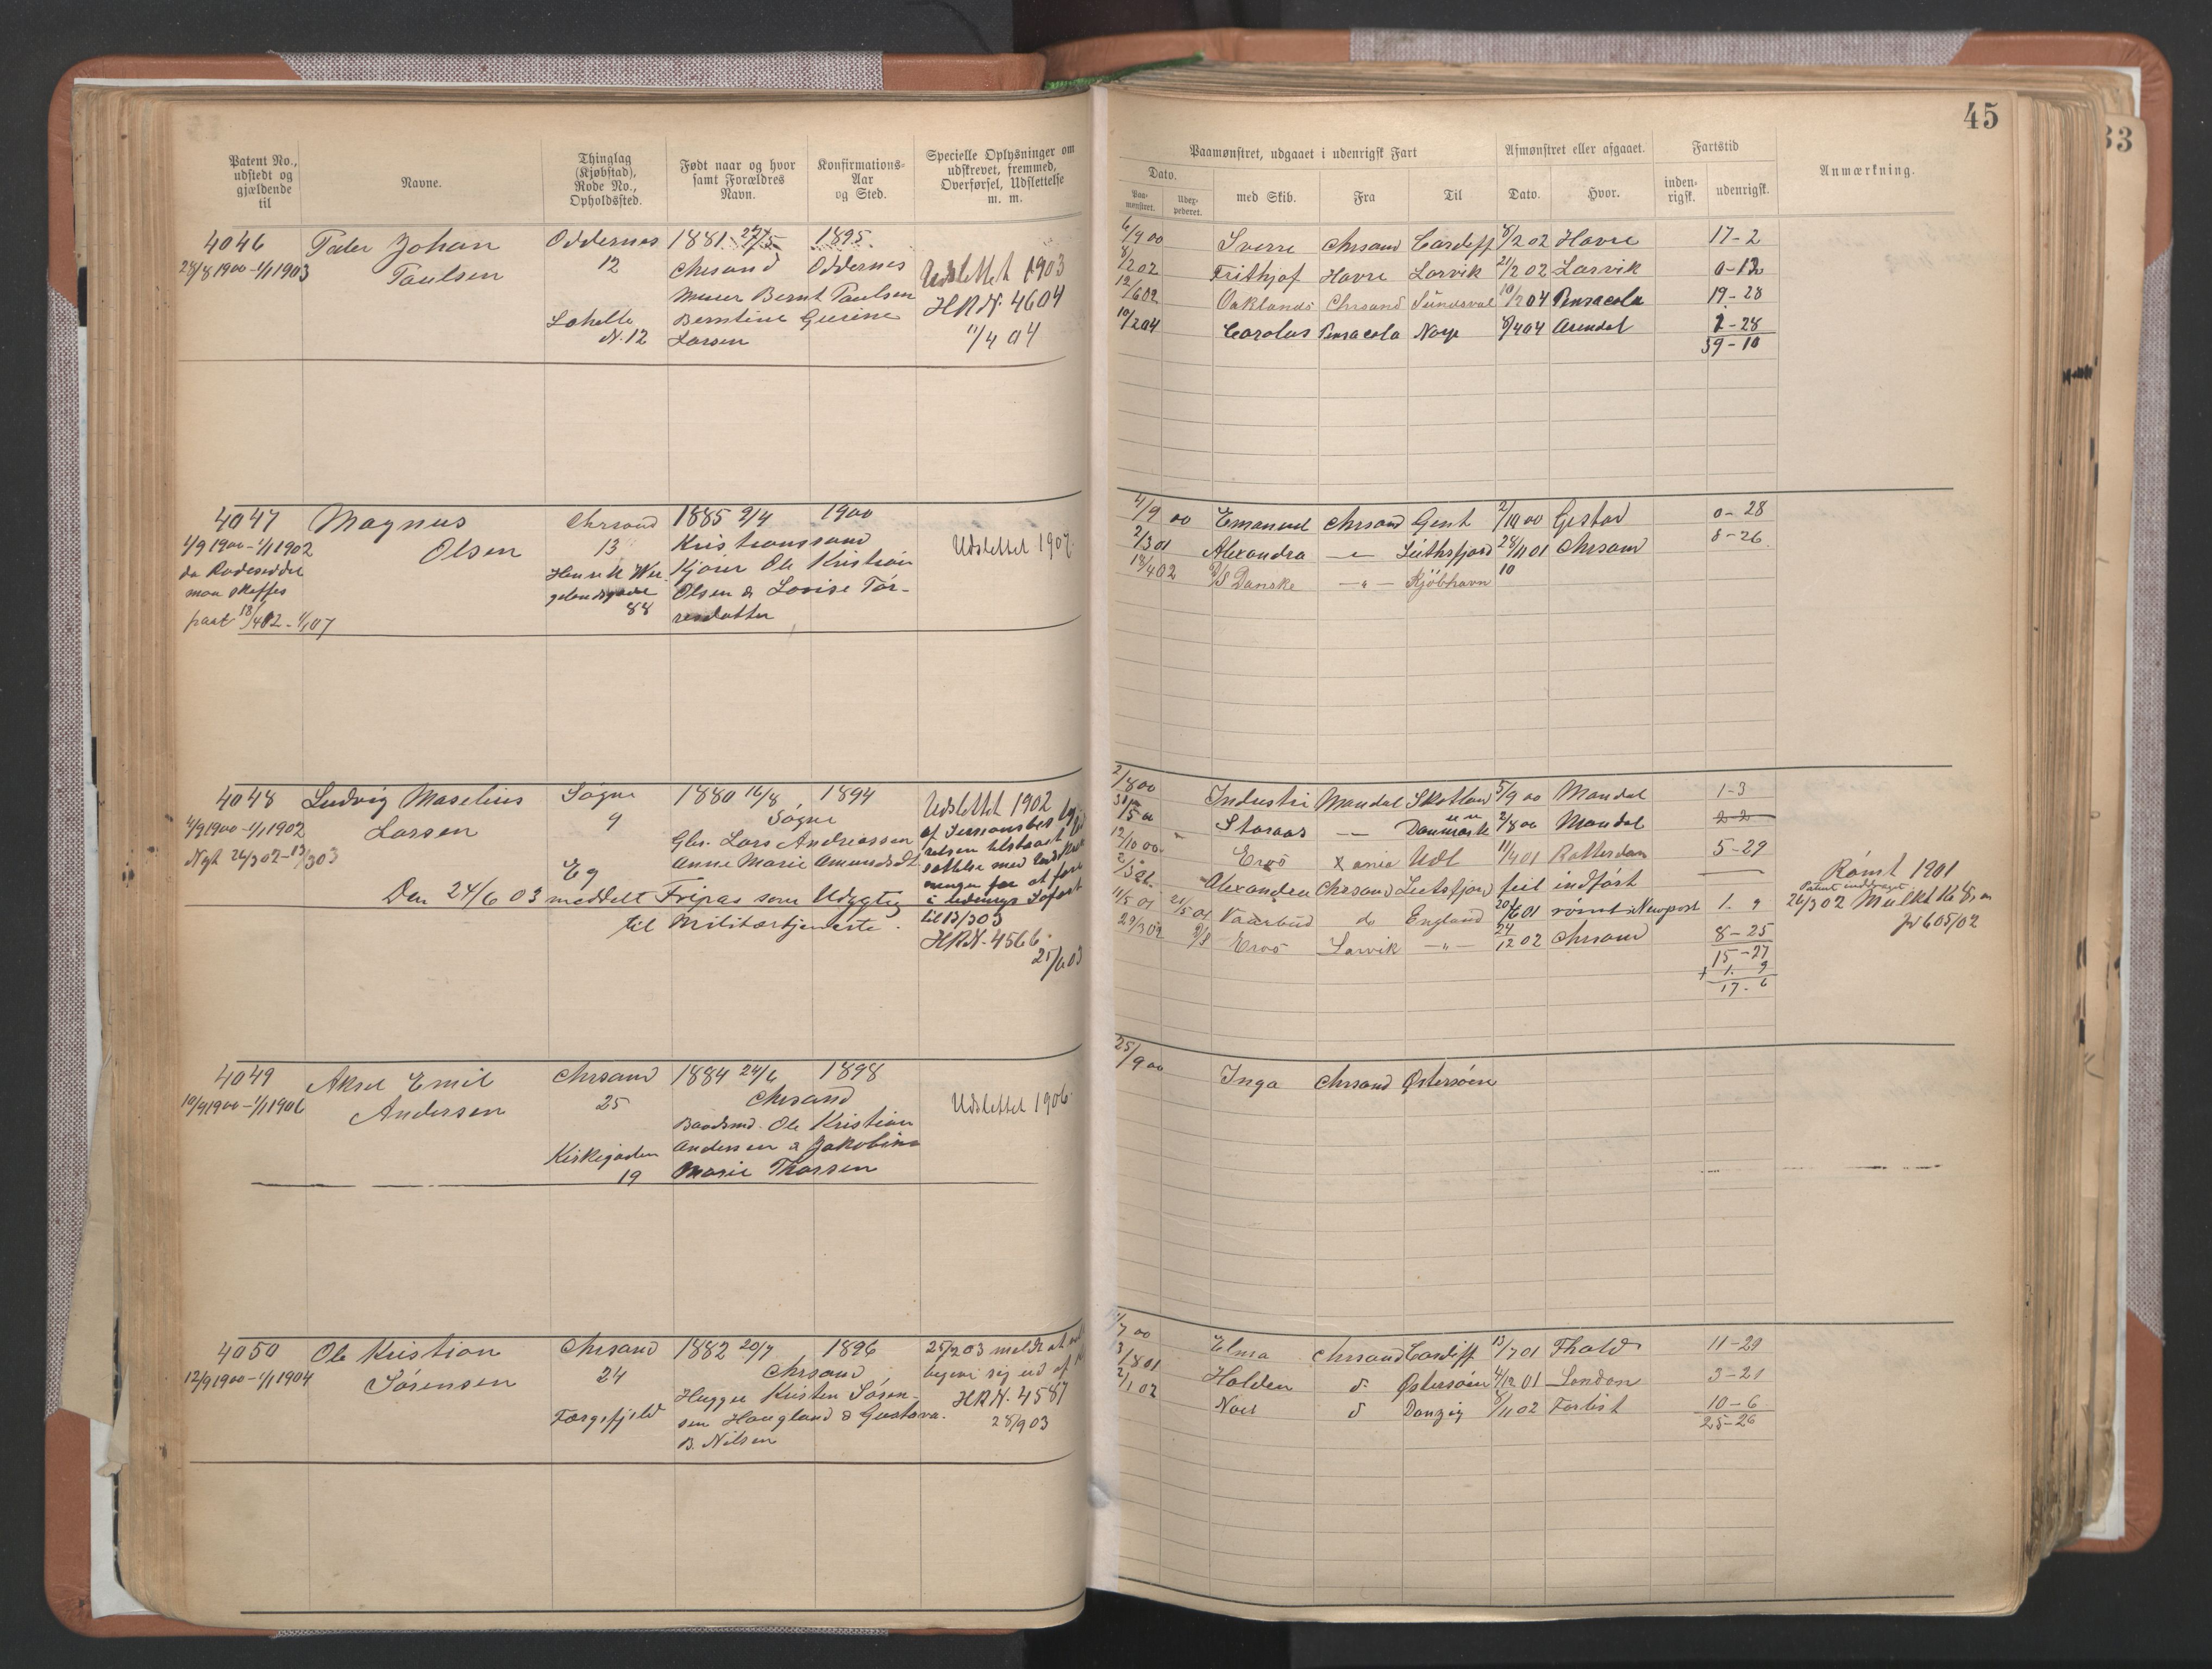 45
33
Patent No., udstedt og gjældende til
Navne.
Thinglag (Kjøbstad), Rode No., Opholdssted.
Født naar og hvor samt Forældres Navn.
Konfirmations-Aar og Sted.
Specielle Oplysninger om udskrevet, fremmed, Overførsel, Udslettelse m. m.
Paamønstret, udgaaet i udenrigsk Fart
Afmønstret eller afgaaet.
Fartstid
Anmærkning.
Dato.
Paa-mønstret.
Udex-pederet.
med Skib.
Fra
Til
Dato.
Hvor.
inden-rigsk.
udenrigsk.
4046 Peder Johan Oddernes 1881 1895
28/8 1900-1/1 1903 Paulsen 12 Chrsand Oddernes Udslettet 1903
Murer Bernt Paulsen HRN. 4604
Lahelle Berntine Gurine
N. 12 Larsen 11/4 04
6/9 00 Sverre Chrsand Cardiff 8/2 02 Havre 17-2
8/2 02 Frithjof Havre Larvik 21/2 02 Larvik 0-13
12/6 02 Oaklands Chrsand Sundsval 10/2 04 Pensacola 19-28
10/2 04 Carolus Pensacola Norge 8/4 04 Arendal 1-28
39-10
4047 Magnus Chrsand 1885 9/4 1900
4/9 1900-1/1 1902 Olsen 13 Kristianssand Udslettet 1907.
da Rodeseddel Henrik Wer- Kjører Ole Kristian
maa skaffes gelandsgade Olsen & Lovise Tor-
paat 18/4 02-1/1 07 88 resdatter
4/9 00 Emanuel Chrsand Gent 2/10 00 Gestad 0-28
2/3 01 Alexandra -"- Leithsfjord 28/11 01 Chrsand 8-26
18/4 02 D/S Danske -"- Kjöbhavn 10
4048 Ludvig Maselius Søgne 1880 16/8 1894 Udslettet 1902
4/9 1900-1/1 1902 Larsen 9 Søgne
Nyt 26/3 02-13/3 03 Gbr. Lars Andreassen
Eg Anne Marie Amundsdt.
Den 24/6 03 meddelt Fripas som Udygtig
til Militærtjeneste.
til 13/3 03
HRN. 4566
25/6 03
2/8 00 Industri Mandal Skotland 5/9 00 Mandal 1-3
Staraas -"- Danmark 2/8 00 Mandal 2-2
12/10 00 Eros Xania Udl 11/4 01 Rotterdam 5-29
Alexandra Chrsand Leithsfjord feil indført
11/5 01 21/5 01 Vaarbud do England 20/6 01 rømt i Newport 1. 9
29/3 02 D/S Eros Larvik -"- 24/12 02 Chrsand 8-25
15-27
+ 1. 9
17. 6
Rømt 1901
Patent inddraget
26/3 02 Mulkt 16 Kr
jr 605/02
4049 Aksel Emil Chrsand 1884 24/6 1898
10/9 1900-1/1 1906 Andersen 25 Chrsand Udslettet 1906.
Baadsmd. Ole Kristian
Kirkegaden Andersen & Jakobine
19 Marie Thorsen
25/9 00 Inga Chrsand Østersøen
4050 Ole Kristian Chrsand 1882 20/7 1896 25/2 03 meldt at
12/9 1900-1/1 1904 Sørensen 24 Chrsand begivi sig ud af
Hugger Kristen Søren- HRN. 4587
Færgefjeld sen Haugland & Gustava 28/9 03
B. Nilsen
7 00 Elma Chrsand Cardiff 13/7 01 Fhald 11-29
3/8 01 Halden d. Østersøen 4/12 01 London 3-21
2/1 02 Noer d Danzig 8/11 02 Farlist 10-6
25-26